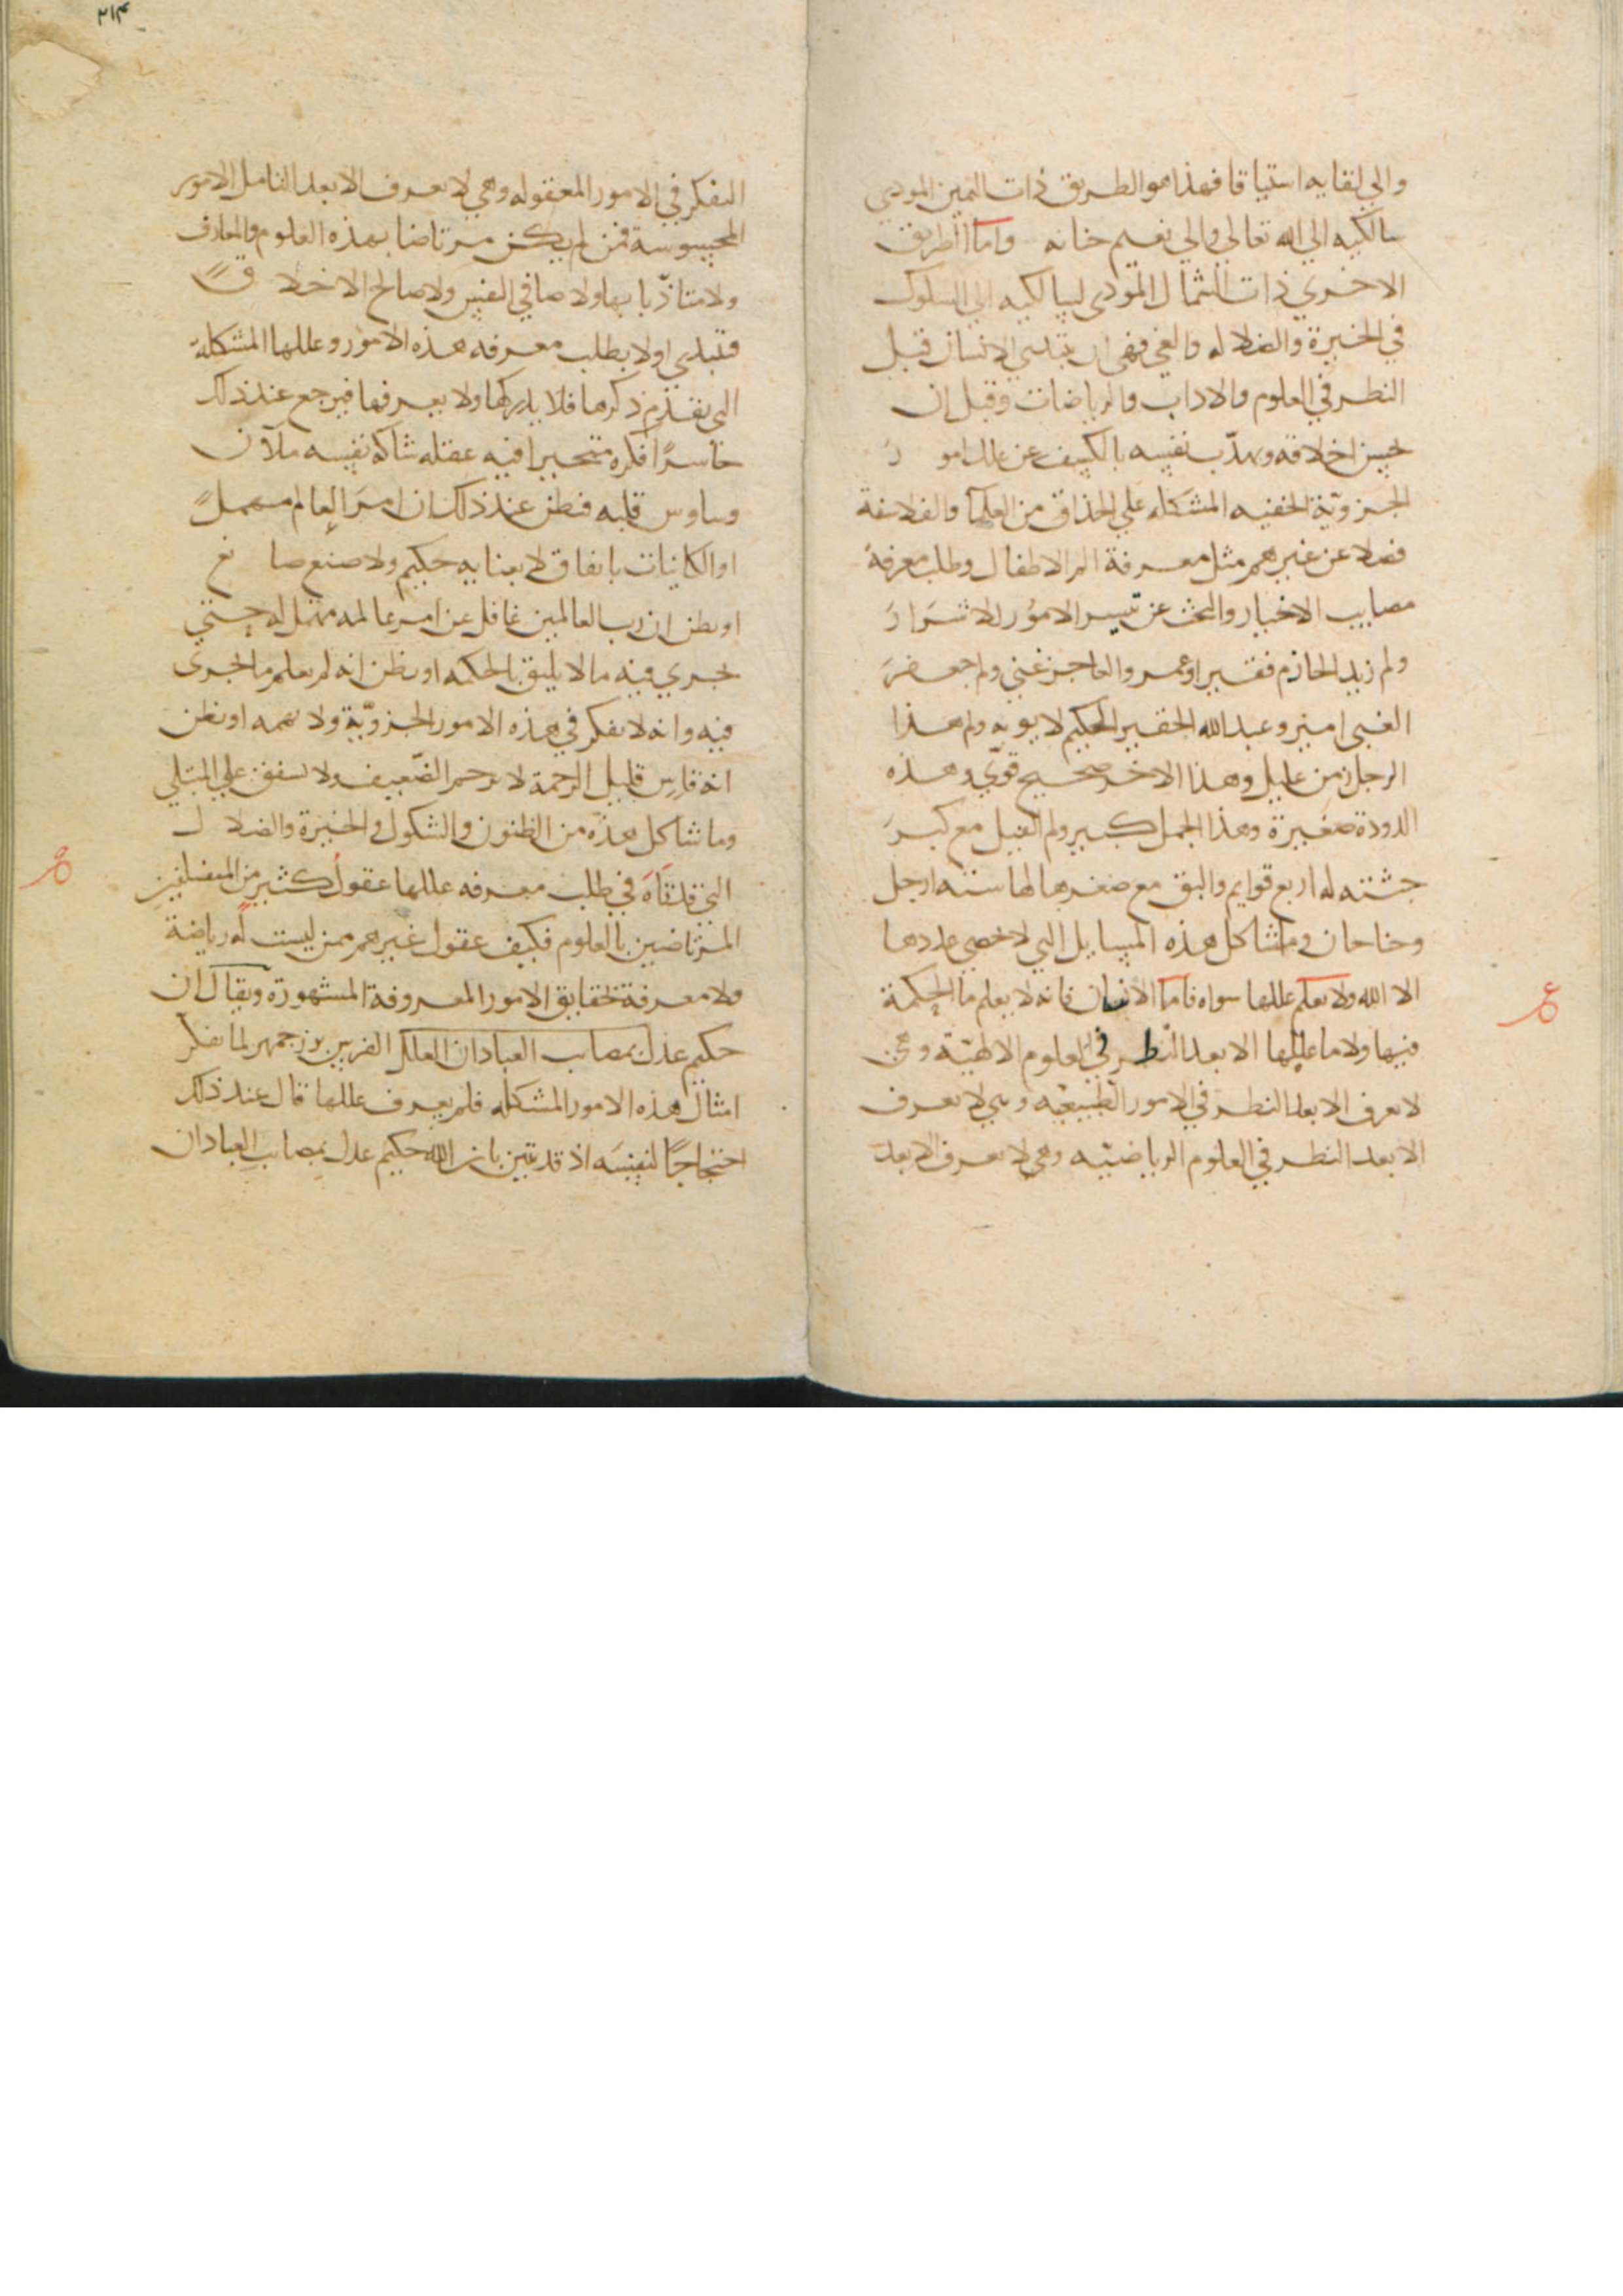 والي لقايه اشتياقا فهذا هو الطريق ذات اليمين المودي
سالكيه الي الله تعالي والي نعيم جنانه واما الطريق
الاخري ذات الشمال المودي لسالكيه الي السلوك
في الحيرة والضلاله والغي فهي ان يبتدي الانسان قبل
النظر في العلوم والاداب والرياضات وقبل ان
يحسن اخلاقه ويهذب نفسه بالكشف عن علل امور
الجزويّة الخفيه المشكله علي الحذاق من العلما والفلاسفة
فضلا عن غيرهم مثل معرفة الم الاطفال وطلب معرفة
مصايب الاخيار والبحث عن تيسير الامور للاشرار
ولم زيد الحازم فقير او عمرو العاجز غني ولم جعفر
الغبي امير وعبد الله الحقير الحكيم لا يوبه ولم هذا
الرجل زمن عليل وهذا الاخر صحيح قوّي وهذه
الدودة صغيرة وهذا الجمل كبير ولم الفيل مع كبر
جثته له اربع قوايم والبق مع صغرها لها سته ارجل
وجناحان وما شاكل هذه المسايل التي لا يحصي عددها
الا الله ولا يعلم عللها سواه فاما الانسان فانه لا يعلم ما الحكمة
فيها ولا ما عللها الا بعد النظر في العلوم الالهيّة وهي
لا تعرف الا بعد النظر في الامور الطبيعيّه وهي لا تعرف
الا بعد النظر في العلوم الرياضيّه وهي لا تعرف الا بعد
٢١٤
التفكر في الامور المعقوله وهي لا تعرف الا بعد التامل الامور
المحسوسة فمن لم يكن مرتاضا بهذه العلوم والمعارف
ولا متادّبا بها ولا صافي النفس ولا صالح الاخلاق
فيبتدي اولا بطلب معرفه هذه الامور وعللها المشكلة
التي تقدم ذكرها فلا يدركها ولا يعرفها فيرجع عند ذلك
خاسرًا فكره متحيرا فيه عقله شاكه نفسه ملآن
وساوس قلبه فيظن عند ذلك ان امر العالم مهمل
او الكاينات باتفاق لا بعنايه حكيم ولا صنع صانع
او يظن ان رب العالمين غافل عن امر عالمه مهمل له حتي
يجري فيه ما لا يليق بالحكمه او يظن انه لم يعلم ما يجري
فيه وانه لا يفكر في هذه الامور الجزويّة ولا تهمه او يظن
انه قاس قليل الرحمة لا يرحم الضّعيف ولا يشفق علي المبتلي
وما شاكل هذه من الظنون والشكوك والحيرة والضلال
التي قد تاه في طلب معرفه عللها عقول كثير من المتفلسفين
المرتاضين بالعلوم فكيف عقول غيرهم ممن ليست له رياضة
ولا معرفة بحقايق الامور المعروفة المشهورة ويقال ان
حكيم عدل بمصايب العباد ان الملك الفرس بوزجمهر لما تفكر
امثال هذه الامور المشكله فلم يعرف عللها قال عند ذلك
احتجاجًا لنفسه اذ قد تبين بان الله حكيم عدل بمصايب العباد ان